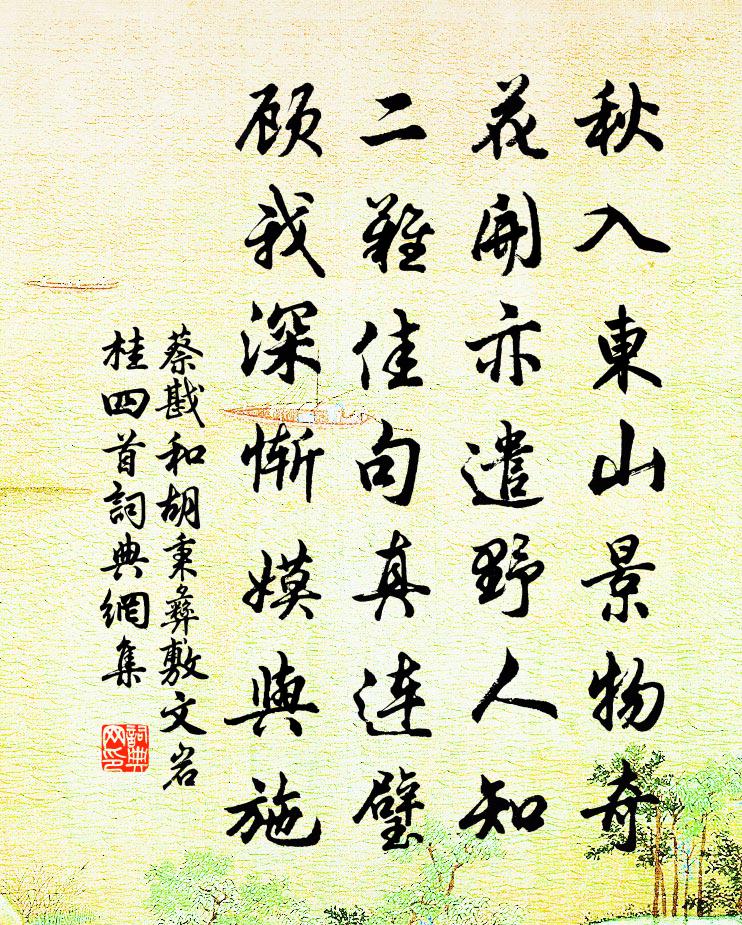 秋入東山景物奇
花開亦遣野人知
二難佳句真連璧
顧我深慚嫫與施
蔡戡和胡秉彝敷文岩
桂四首詞典網集
詞典
网印